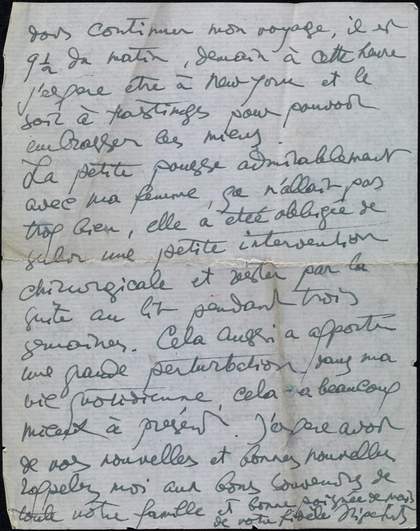 dois continuer mon voyage, il est
9½ du matin, demain à cette heure
j'espere etre à New York et le
soir à Hastings pour pouvoir
embrasser les miens.
La petite pousse admirablement
avec ma femme, ça n'allait pas
trop bien, elle à eteé obbligée de
subir une petite intervention
chirurgicale et rester par la
suite au lit pendant trois
semaines. Cela aussi a apporté
une grande perturbation dans ma
vie quotidienne, cela va beaucoup
mieux à présent. J'espere avoir
de vos nouvelles et bonnes nouvelles
rappelez moi aux bons souvenirs de
toute votre famille et bonne poignée de main
de votre fidele